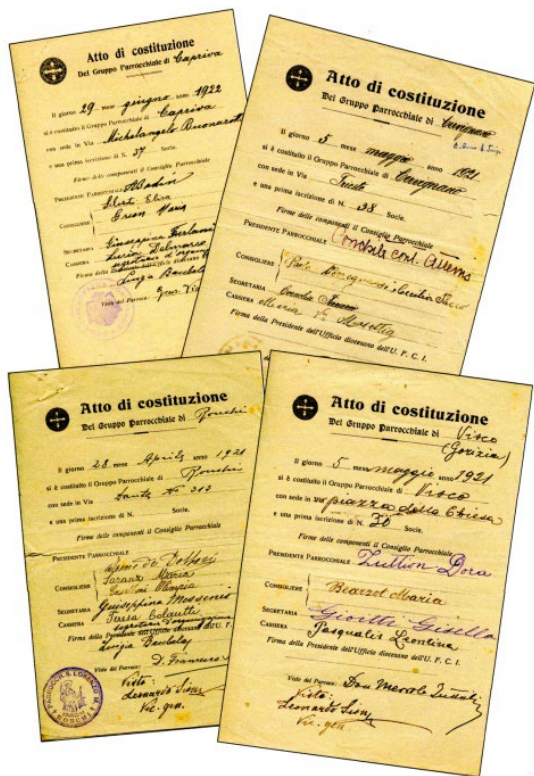 Atto di costituzione
Del Gruppo Parrocchiale di Capriva
Il giorno 29 mese giugno anno 1922
si è costituito il Gruppo Parrocchiale di Capriva
con sede in Via Michelangelo Buonarroti
e una prima iscrizione di N. 37 Socie.
Firme dei componenti il Consiglio Parrocchiale
PRESIDENTE PARROCCHIALE
Elisa
Maria
CONSIGLIERE
SEGRETARIA Giuseppina Furlani
CASSIERA Luisa Delmarco
Firma della
Luigia
Visto del Parroco:
Atto di costituzione
Del Gruppo Parrocchiale di
Il giorno 5 mese maggio anno 1921
si è costituito il Gruppo Parrocchiale di
con sede in Via Trieste
e una prima iscrizione di N. 38 Socie.
Firme dei componenti il Consiglio Parrocchiale
PRESIDENTE PARROCCHIALE cont. Attems
CONSIGLIERE
SEGRETARIA
CASSIERA Maria
Firma della Presidente dell'Ufficio diocesano dell'U. F. C. I.
Atto di costituzione
Del Gruppo Parrocchiale di Ronchi
Il giorno 28 mese Aprile anno 1921
si è costituito il Gruppo Parrocchiale di Ronchi
con sede in Via Dante No 313
e una prima iscrizione di N. Socie.
Firme dei componenti il Consiglio Parrocchiale
PRESIDENTE PARROCCHIALE
Maria
CONSIGLIERE Olimpia
SEGRETARIA Giuseppina
CASSIERA Teresa Colautti
Firma della Presidente dell'Ufficio diocesano dell'U. F.
Luigia
Visto del Parroco: D. Francesco
Visto:
Leonardo
Vic. gen.
PARROCCHIA S. LORENZO M.
RONCHI
Atto di costituzione
Del Gruppo Parrocchiale di Visco
(Gorizia)
Il giorno 5 mese maggio anno 1921
si è costituito il Gruppo Parrocchiale di Visco
con sede in Via piazza della Chiesa
e una prima iscrizione di N. 30 Socie.
Firme dei componenti il Consiglio Parrocchiale
PRESIDENTE PARROCCHIALE Zuttion Dora
CONSIGLIERE Bearzot Maria
SEGRETARIA Gisella
CASSIERA Pasqualis Leontina
Firma della Presidente dell'Ufficio diocesano dell'U. F. C. I.
Visto del Parroco: Don
Visto:
Leonardo
Vic. gen.